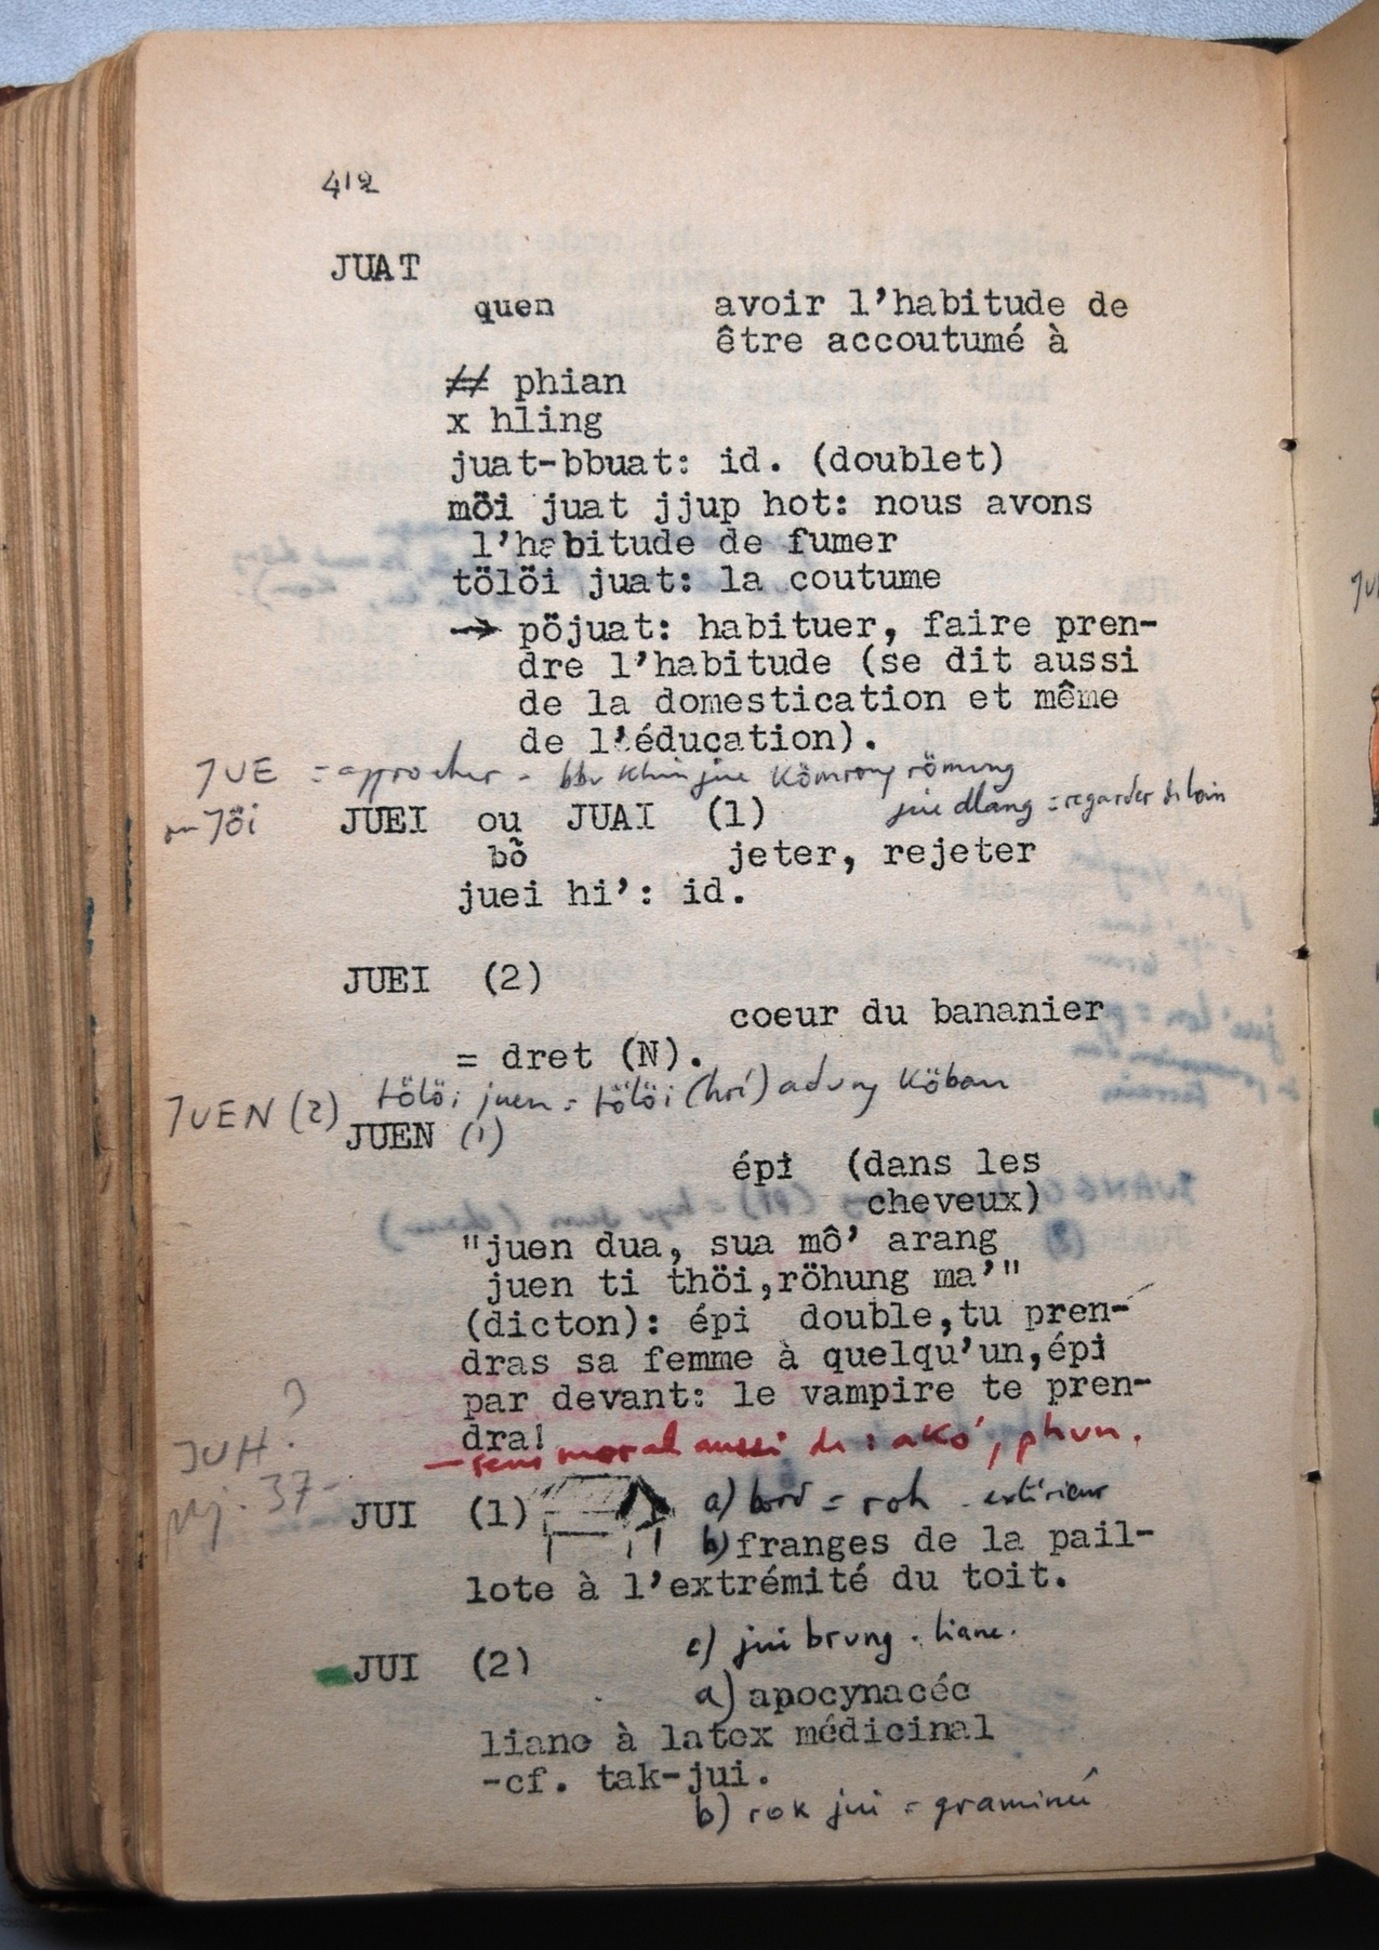 412
JUAT
quen avoir l'habitude de
être accoutumé à
## phian
x hling
juat-bbuat: id. (doublet)
möi juat jjup hot: nous avons
l'habitude de fumer
tölöi juat: la coutume
→ pöjuat: habituer, faire pren-
dre l'habitude (se dit aussi
de la domestication et même
de l'éducation).
JUE = approcher - bbu khin jue kömrong römung
ou Jöi
jue dlang = regarder de loin
JUEI ou JUAI (1)
bõ jeter, rejeter
juei hi': id.
JUEI (2)
coeur du bananier
= dret (N).
JUEN (2) tölöi juen = tölöi (hri) adung köban
JUEN (1)
épi (dans les
cheveux)
"juen dua, sua mô' arang
juen ti thöi,röhung ma'"
(dicton): épi double,tu pren-
dras sa femme à quelqu'un,épi
par devant: le vampire te pren-
dra!
— sens moral aussi de : akó, phun.
JUH ?
37-
JUI (1) a) bord = roh - extérieur
b) franges de la pail-
lote à l'extrémité du toit.
c) jui brung . liane.
JUI (2)
a) apocynacée
liane à latex médicinal
-cf. tak-jui.
b) rok jui = graminée